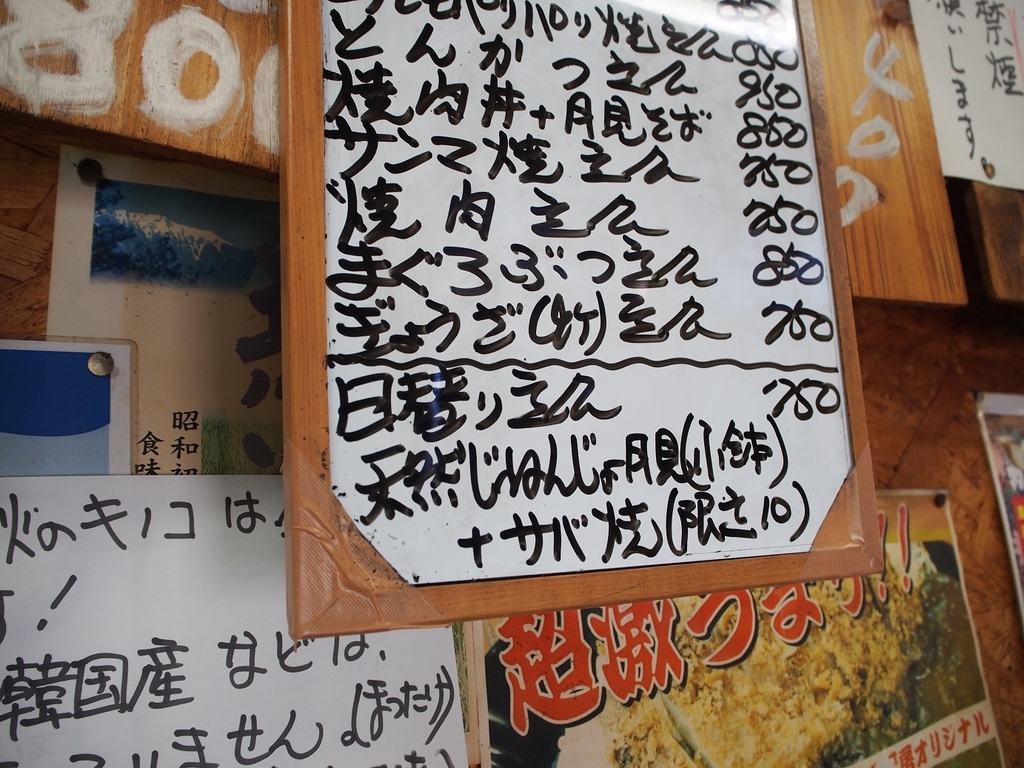 パリパリ焼定食 850
とんかつ定食 950
焼肉丼+月見そば 850
サンマ焼定食 750
焼肉定食 750
まぐろぶつ定食 850
ぎょうざ(4ケ)定食 750
日替り定食 750
天然じねんじょ月見(小鉢)
+サバ焼(限定10)
400
禁煙
願いします。
昭和初
食味
のキノコは
す!
韓国産などは、
ません。(ほったけ)
超激うまっ!!
オリジナル